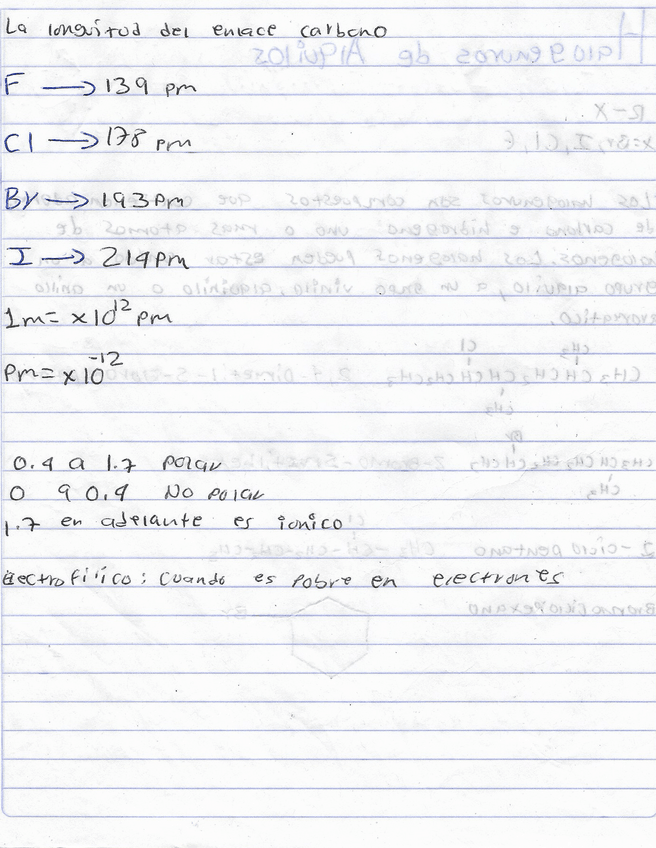 La longitud del enlace carbono
F → 139 pm
Cl → 178 pm
Br → 193 pm
I → 214 pm
1m = x10^12 pm
Pm = x10^-12
0.4 a 1.7 Polar
0 a 0.4 No polar
1.7 en adelante es ionico
Electrofilico: Cuando es Pobre en electrones